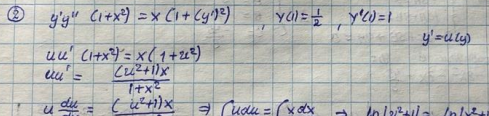 ② y'y'' (1+x²) = x(1+(y')²) , y(1) = 1/2 , y'(1) = 1
y' = u(y)
uu' (1+x²) = x(1+u²)
uu' = (u²+1)x / 1+x²
u du = (u²+1)x ⇒ ∫udu = ∫xdx ⇒